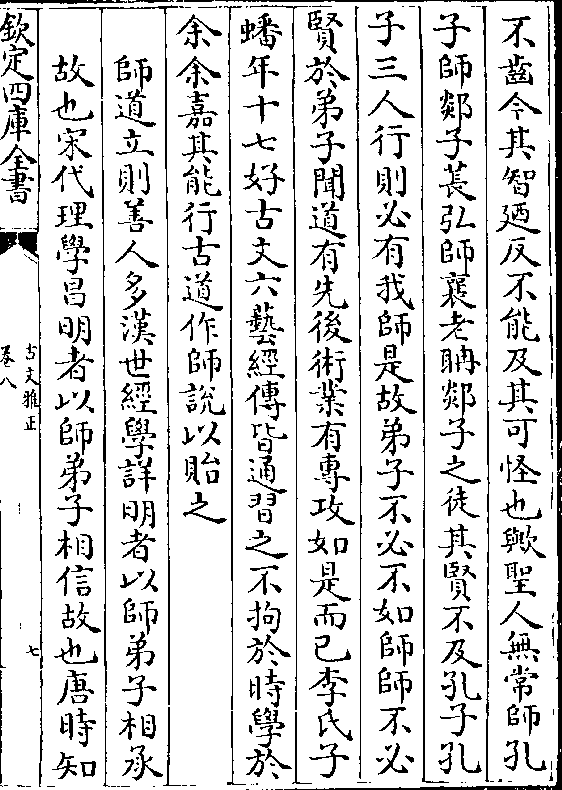 不齒今其智廼反不能及其可怪也歟聖人無常師孔
子師郯子萇弘師襄老聃郯子之徒其賢不及孔子孔
子三人行則必有我師是故弟子不必不如師師不必
賢於弟子聞道有先後術業有專攻如是而已李氏子
蟠年十七好古文六藝經傳皆通習之不拘於時學於
余余嘉其能行古道作師說以貽之
師道立則善人多漢世經學詳明者以師弟子相承
故也宋代理學昌明者以師弟子相信故也唐時知
欽定四庫全書
古文雅正
卷八
七